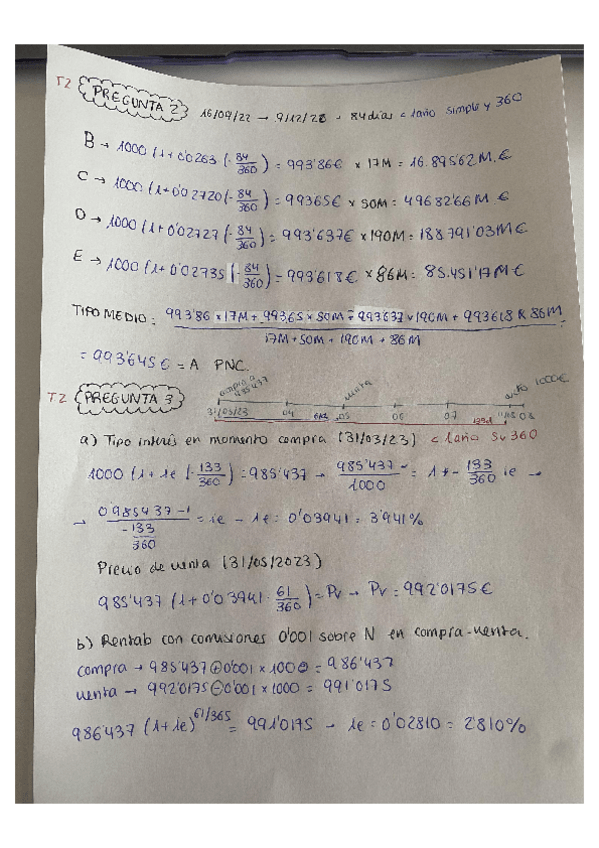 T2 PREGUNTA 2 16/09/22 → 9/12/22 → 84 días < 1año simple y 360
B → 1000 (1+0'0263 (-84/360) = 993'86€ x 17M = 16.895'62M.€
C → 1000 (1+0'02720 (-84/360) = 993'65€ x 50M = 49682'66M €
D → 1000 (1+0'02727 (-84/360) = 993'637€ x 190M = 188.791'03M€
E → 1000 (1+0'02735 (-84/360) = 993'618€ x 86M = 85.451'17M€
TIPO MEDIO: 993'86 x 17M + 993'65 x 50M + 993'637 x 190M + 993'618 x 86M
17M + 50M + 190M + 86M
= 993'645€ = A PNC.
T2 PREGUNTA 3 compra a 985'437 venta 1000€
31/03/23 04 61d 05 06 07 133d 08
a) Tipo interés en momento compra (31/03/23) < 1año S y 360
1000 (1+ie (-133/360) = 985'437 → 985'437/1000 = 1 + - 133/360 ie →
→ 0'985437-1 / -133/360 = ie → ie = 0'03941 = 3'941%
Precio de venta (31/05/2023)
985'437 (1+0'03941 · 61/360) = Pv → Pv = 992'0175€
b) Rentab con comisiones 0'001 sobre N en compra-venta.
compra → 985'437 + 0'001 x 1000 = 986'437
venta → 992'0175 - 0'001 x 1000 = 991'0175
986'437 (1+ie)^61/365 = 991'0175 → ie = 0'02810 = 2'810%